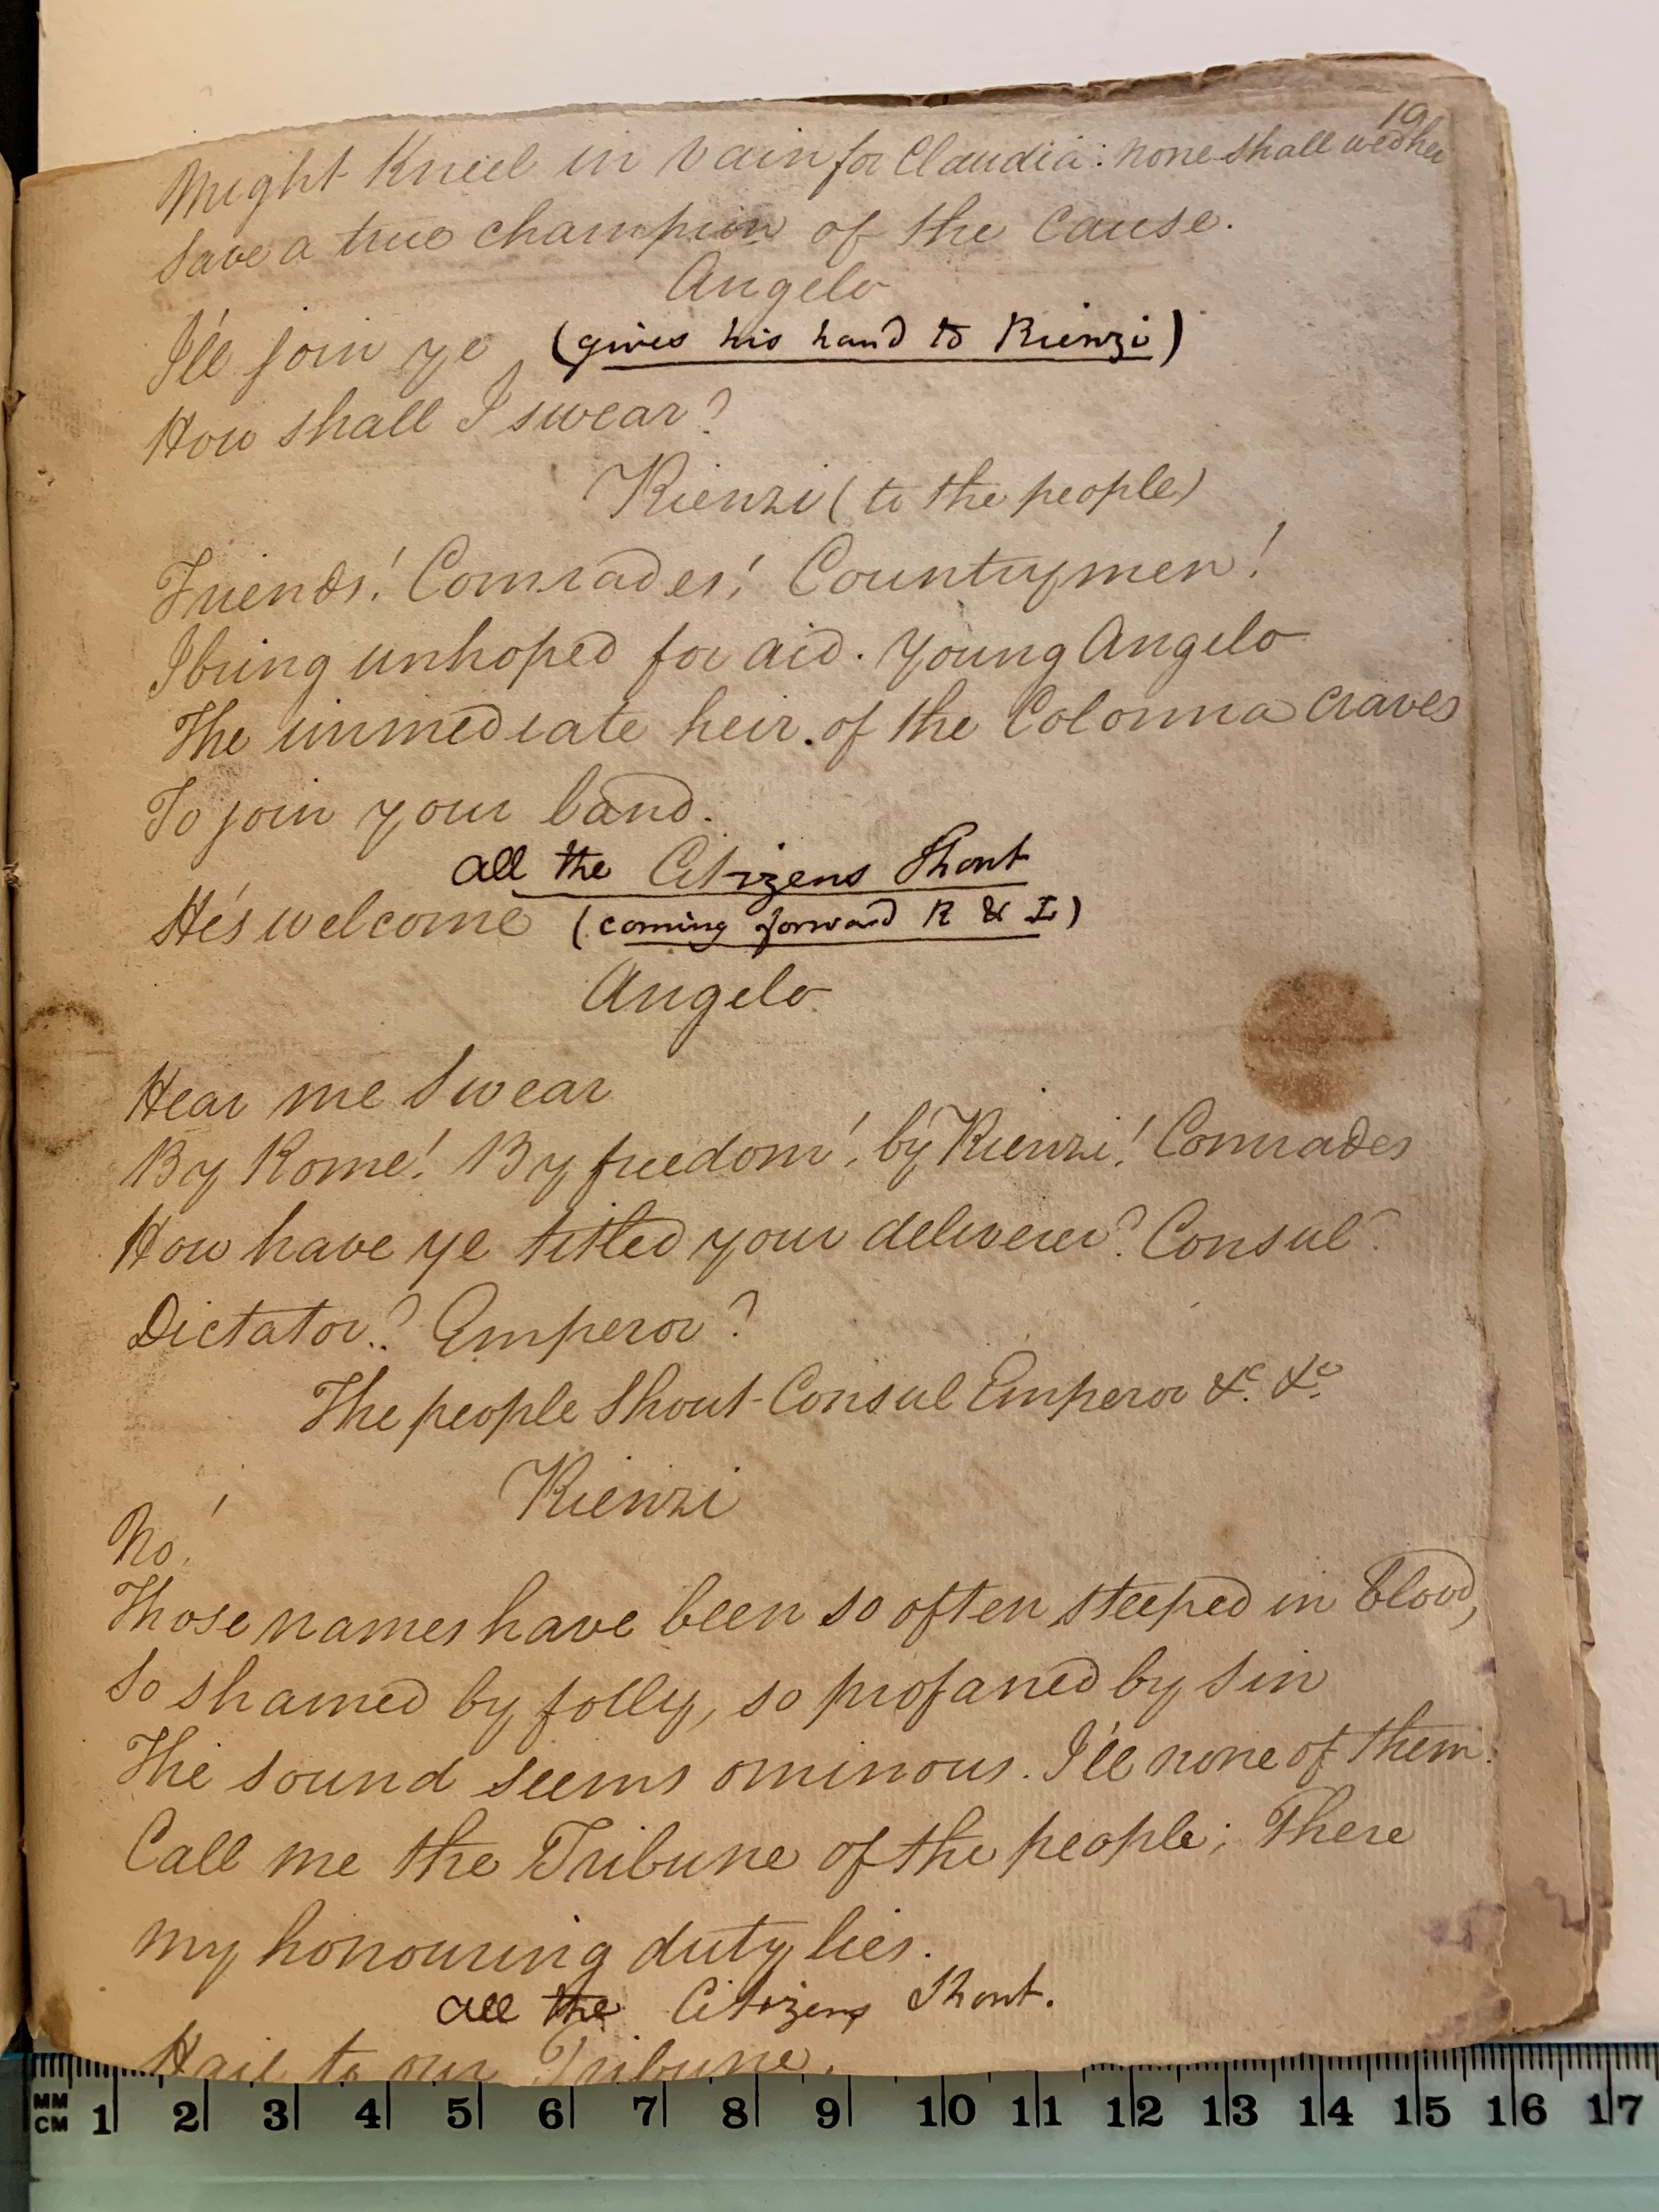 19
Might Kneel in vain for Claudia: none shall wed her
Save a true champion of the Cause.
Angelo
I'll join ye (gives his hand to Rienzi)
How shall I swear?
Rienzi (to the people)
Friends! Comrades! Countrymen!
I bring unhoped for aid. Young Angelo
The immediate heir of the Colonna craves
To join your band.
all the Citizens Shout
He's welcome (coming forward R & L)
Angelo
Hear me Swear
By Rome! By freedom! by Rienzi! Comrades
How have ye titled your deliverer? Consul?
Dictator? Emperor?
The people Shout - Consul Emperor &c. &c.
Rienzi
No!
Those names have been so often steeped in blood,
So shamed by folly, so profaned by sin
The sound seems ominous. I'll none of them.
Call me the Tribune of the people; There
my honouring duty lies.
all the Citizens Shout.
Hail to our Tribune.
MM
CM 1 2 3 4 5 6 7 8 9 10 11 12 13 14 15 16 17